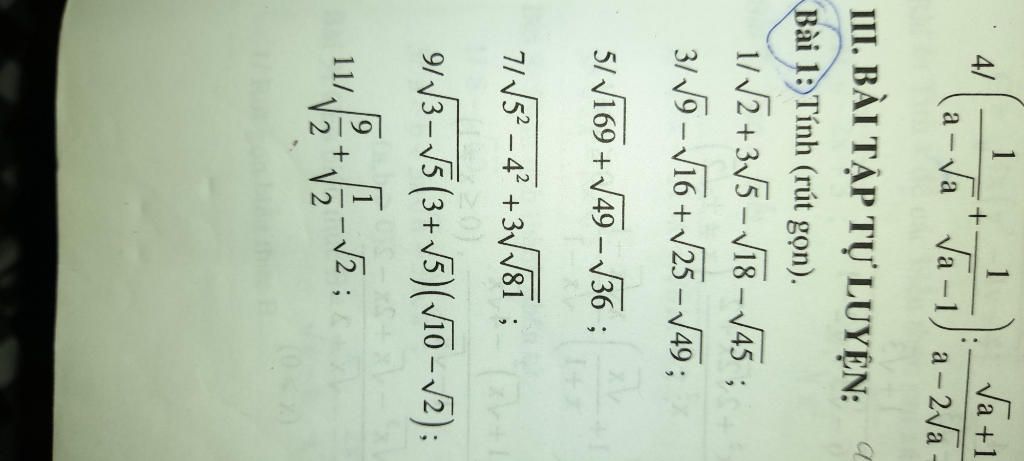 4/ (1/(a − √a) + 1/(√a − 1)) : (√a + 1)/(a − 2√a
III. BÀI TẬP TỰ LUYỆN:
Bài 1: Tính (rút gọn).
1/ √2 + 3√5 − √18 − √45 ;
3/ √9 − √16 + √25 − √49 ;
5/ √169 + √49 − √36 ;
7/ √(5² − 4²) + 3√√81 ;
9/ √(3 − √5) (3 + √5)(√10 − √2) ;
11/ √(9/2) + √(1/2) − √2 ;